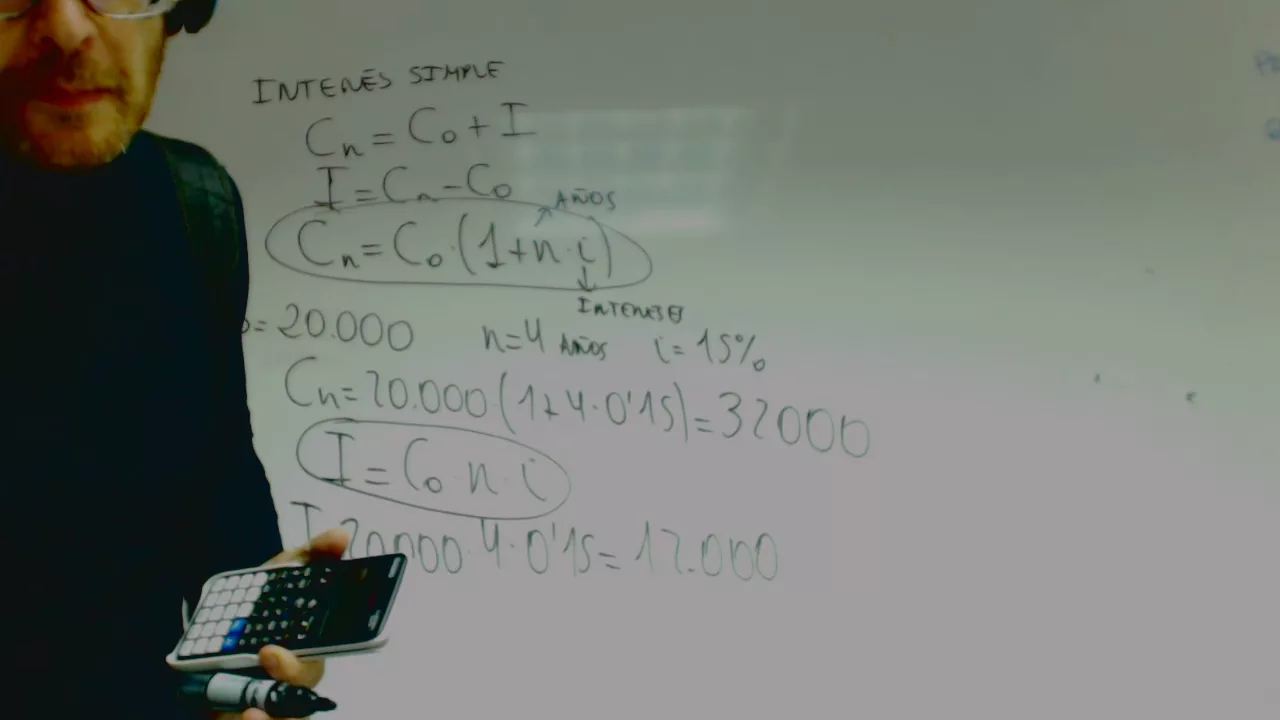 INTERÉS SIMPLE
Cn = C0 + I
I = Cn - C0
AÑOS
Cn = C0 · (1 + n · i)
INTERESES
= 20.000 n = 4 AÑOS i = 15%
Cn = 20.000 (1 + 4 · 0'15) = 32000
I = C0 n i
I 20000 · 4 · 0'15 = 12.000